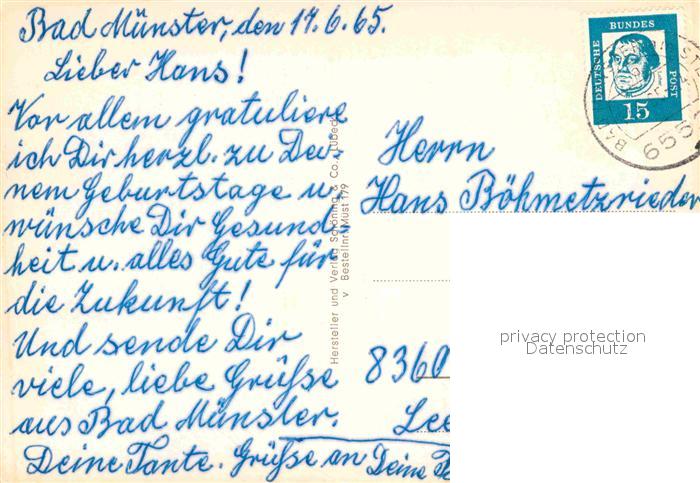 Bad Münster, den 17.6.65.
Lieber Hans!
Vor allem gratuliere
ich Dir herzl. zu Dei-
nem Geburtstage u.
wünsche Dir Gesund-
heit u. alles Gute für
die Zukunft!
Und sende Dir
viele, liebe Grüße
aus Bad Münster.
Deine Tante. Grüße an Deine
Hersteller und Verlag Schöning & Co., Lübeck
v Bestellnr. Müst 179
DEUTSCHE BUNDES POST
15
655
Herrn
Hans Böhmetzrieder
8360
privacy protection
Datenschutz